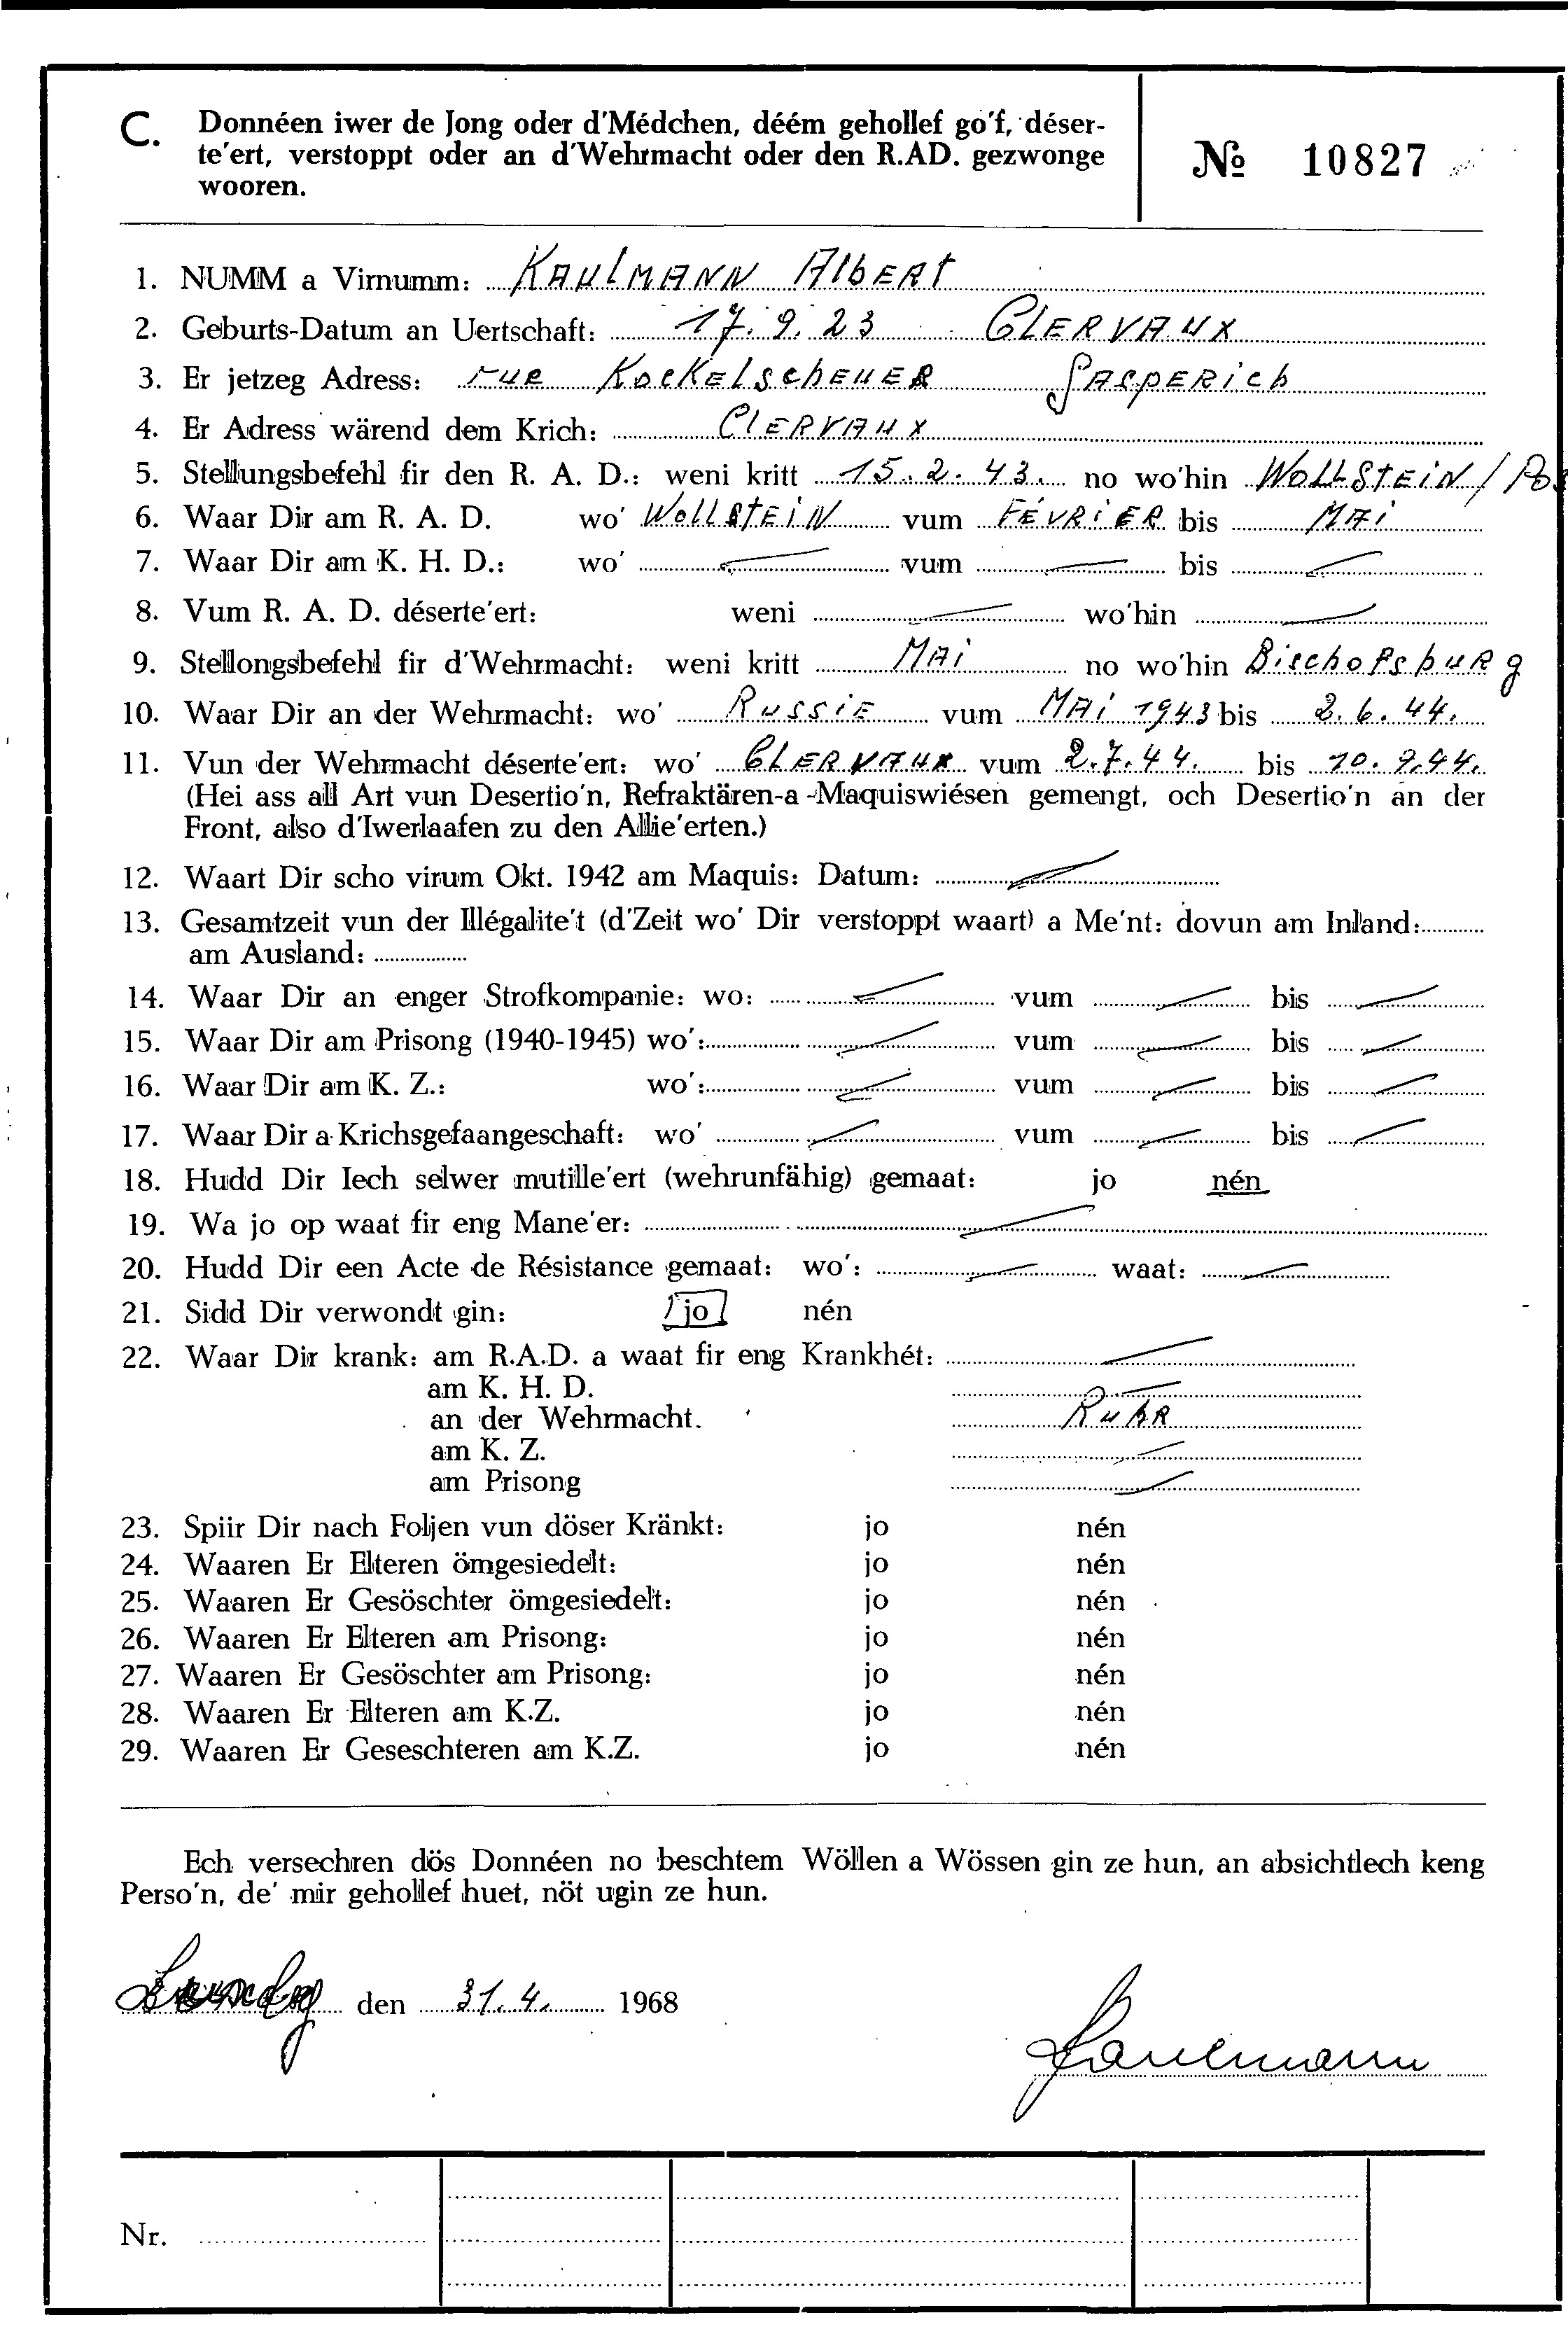 C. Donnéen iwer de Jong oder d'Médchen, déém gehollef go'f, déser-
te'ert, verstoppt oder an d'Wehrmacht oder den R.AD. gezwonge
wooren.
№ 10827
1. NUMM a Virnumm: KAULMANN AlbERt
2. Geburts-Datum an Uertschaft: 17.9.23 CLERVAUX
3. Er jetzeg Adress: rue KocKElschEUER GASpERich
4. Er Adress wärend dem Krich: ClERVAUX
5. Stellungsbefehl fir den R. A. D.: weni kritt 15.2.43. no wo'hin WOLLStEiN / Pos
6. Waar Dir am R. A. D. wo' WollstEiN vum FÉVRiER bis MAi
7. Waar Dir am K. H. D.: wo' vum bis
8. Vum R. A. D. déserte'ert: weni wo'hin
9. Stellongsbefehl fir d'Wehrmacht: weni kritt MAi no wo'hin Bischofsburg
10. Waar Dir an der Wehrmacht: wo' RussiE vum MAi 1943 bis 2.6.44.
11. Vun der Wehrmacht déserte'ert: wo' CLERVAUX vum 2.7.44. bis 10.9.44.
(Hei ass all Art vun Desertio'n, Refraktären-a-Maquiswiésen gemengt, och Desertio'n an der
Front, also d'Iwerlaafen zu den Allie'erten.)
12. Waart Dir scho virum Okt. 1942 am Maquis: Datum:
13. Gesamtzeit vun der Illégalite't (d'Zeit wo' Dir verstoppt waart) a Me'nt: dovun am Inland:
am Ausland:
14. Waar Dir an enger Strofkompanie: wo: vum bis
15. Waar Dir am Prisong (1940-1945) wo': vum bis
16. Waar Dir am K. Z.: wo': vum bis
17. Waar Dir a Krichsgefaangeschaft: wo' vum bis
18. Hudd Dir Iech selwer mutille'ert (wehrunfähig) gemaat: jo nén
19. Wa jo op waat fir eng Mane'er:
20. Hudd Dir een Acte de Résistance gemaat: wo': waat:
21. Sidd Dir verwondt gin: jo nén
22. Waar Dir krank: am R.A.D. a waat fir eng Krankhét:
am K. H. D.
an der Wehrmacht. RuhR
am K. Z.
am Prisong
23. Spiir Dir nach Foljen vun döser Kränkt: jo nén
24. Waaren Er Elteren ömgesiedelt: jo nén
25. Waaren Er Gesöschter ömgesiedelt: jo nén
26. Waaren Er Elteren am Prisong: jo nén
27. Waaren Er Gesöschter am Prisong: jo nén
28. Waaren Er Elteren am K.Z. jo nén
29. Waaren Er Geseschteren am K.Z. jo nén
Ech versechren dös Donnéen no beschtem Wöllen a Wössen gin ze hun, an absichtlech keng
Perso'n, de' mir gehollef huet, nöt ugin ze hun.
den 31.4. 1968
Kaulmann
Nr.